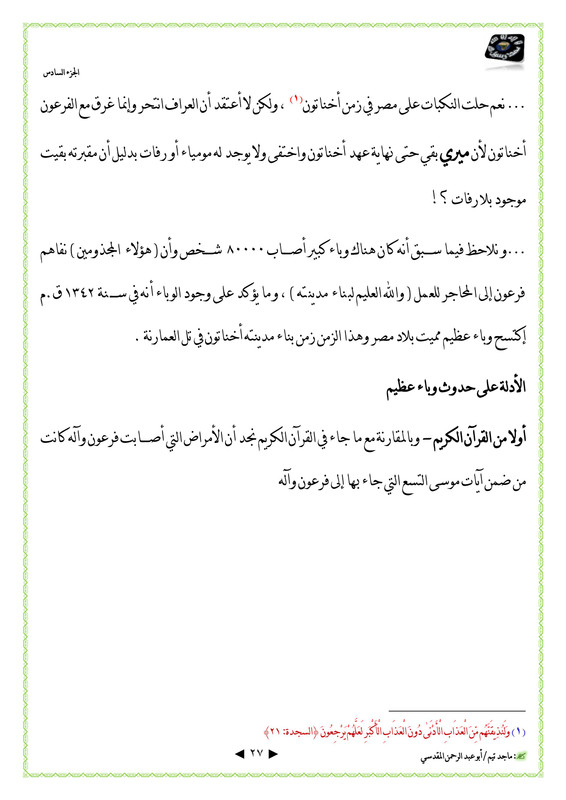 الجزء السادس
... نعم حلت النكبات على مصر في زمن أخناتون (١) ، ولكن لا أعتقد أن العراف انتحر وإنما غرق مع الفرعون
أخناتون لأن ميري بقي حتى نهاية عهد أخناتون واختفى ولا يوجد له مومياء أو رفات بدليل أن مقبرته بقيت
موجود بلا رفات ؟ !
...و نلاحظ فيما سبق أنه كان هناك وباء كبير أصاب ٨٠٠٠٠ شخص وأن ( هؤلاء المجذومين ) نفاهم
فرعون إلى المحاجر للعمل ( والله العليم لبناء مدينته ) ، وما يؤكد على وجود الوباء أنه في سنة ١٣٤٢ ق.م
إكتسح وباء عظيم مميت بلاد مصر وهذا الزمن زمن بناء مدينته أخناتون في تل العمارنة .
الأدلة على حدوث وباء عظيم
أولا من القرآن الكريم – وبالمقارنة مع ما جاء في القرآن الكريم نجد أن الأمراض التي أصابت فرعون وآله كانت
من ضمن آيات موسى التسع التي جاء بها إلى فرعون وآله
(١) وَلَنُذِيقَنَّهُم مِّنَ الْعَذَابِ الْأَدْنَىٰ دُونَ الْعَذَابِ الْأَكْبَرِ لَعَلَّهُمْ يَرْجِعُونَ ﴿السجدة: ٢١﴾
: ماجد تيم / أبو عبد الرحمن المقدسي
◄ ٢٧ ►